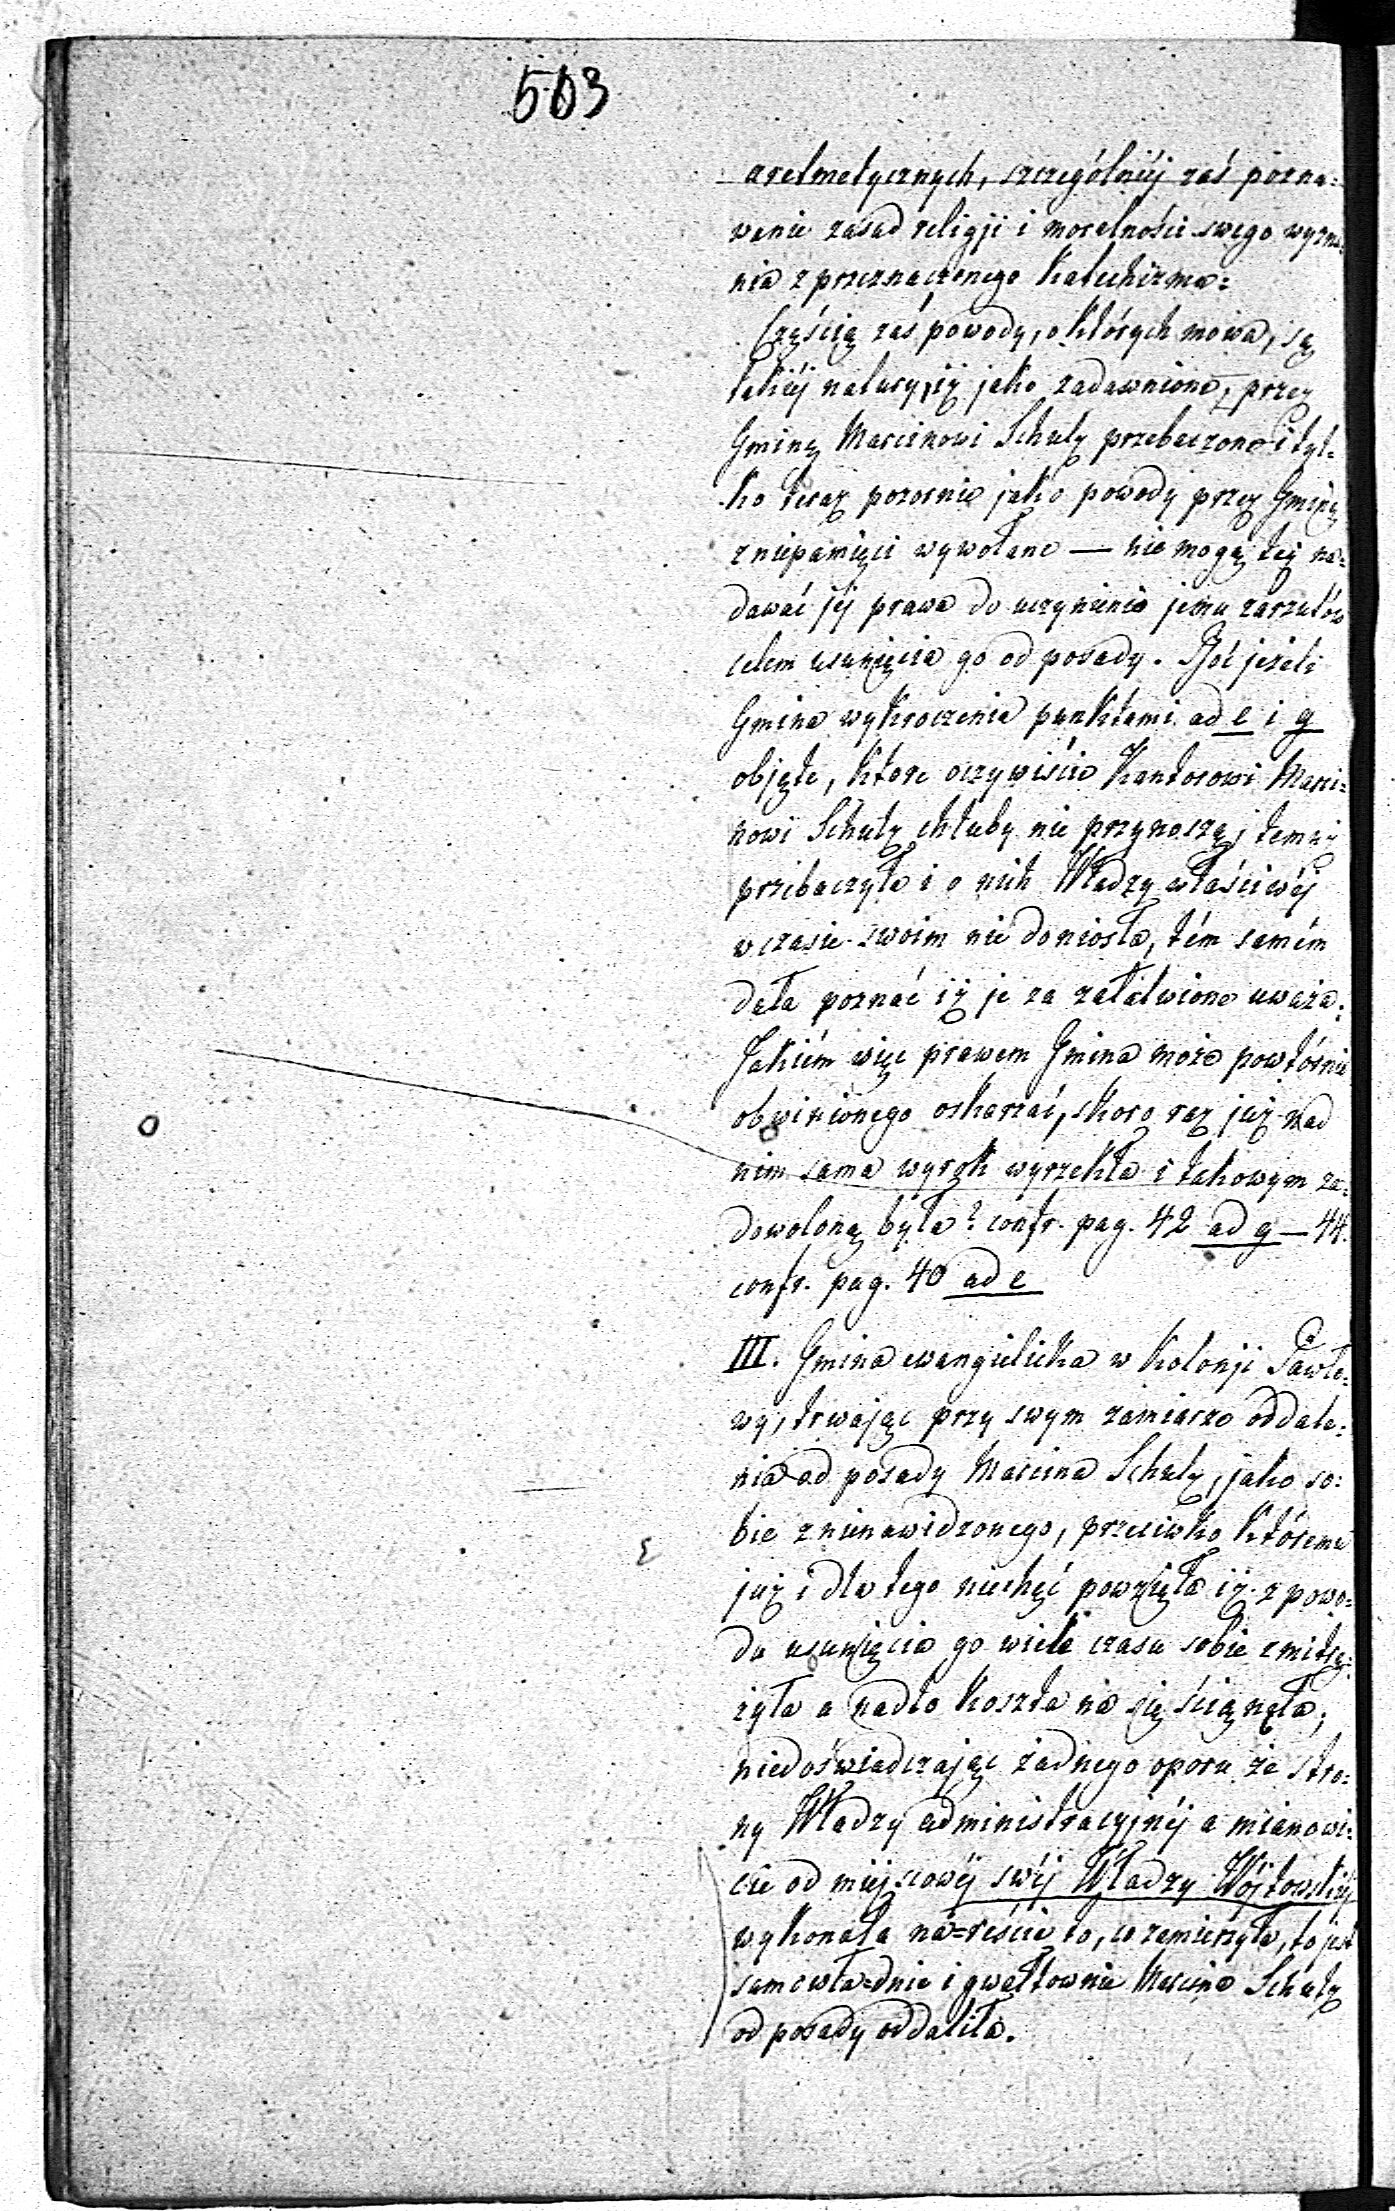 503
aretmetycznych, szczególniéj zaś pozna=
wanie zasad religji i moralności swego wyzna=
nia z przeznaczonego Katechizma=
Częścią zaś powody, o których mowa, są
takiéj natury, iż jako zadawnione, przez
Gminę Marcinowi Schulz przebaczone i tyl=
ko teraz pozornie jako powody przez Gminę
z niepamięci wywołane — nie mogą też na=
dawać jéj prawa do uczynienia jemu zarzutów
celem usunięcia go od posady. Bo jeżeli
Gmina wykroczenia punktami ad e i g
objęte, które oczywiście Kantorowi Marci=
nowi Schulz chluby nie przynoszą, temuż
przebaczyła i o nich Władzy właściwéj
w czasie swoim nie doniosła, tém samém
dała poznać iż je za załatwione uważa;
Jakiém więc prawem Gmina może powtórnie
obwinionego oskarzać, skoro raz już nad
nim sama wyrok wyrzekła i takowym za=
dowoloną była? confr. pag. 42 ad g — 44.
confr. pag. 40 ad e
III. Gmina ewangielicka w Kolonji Pawło=
wy, trwając przy swym zamiarze oddale=
nia od posady Marcina Schulz, jako so=
bie znienawidzonego, przeciwko któremu
już i dla tego niechęć powzięła iż z powo=
du usunięcia go wiele czasu sobie zmitrę=
żyła a nadto koszta na się ściągnęła,
niedoświadczając żadnego oporu ze stro=
ny Władzy administracyjnéj a mianowi=
cie od miejscowéj swéj Władzy Wójtowskiéj
wykonała na=reście to, co zamierzyła, to jest
samowła=dnie i gwałtownie Marcina Schulz
od posady oddaliła.